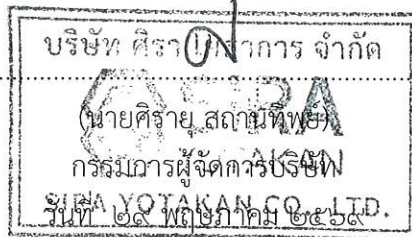 บริษัท ศิรา โยธาการ จำกัด
SIRA
(นายศิรายุ สถานทิพย์)
กรรมการผู้จัดการบริษัท
SIRA YOTAKAN CO., LTD.
วันที่ ๒๙ พฤษภาคม ๒๕๖๙